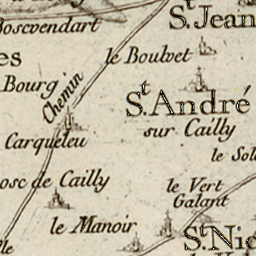 St. Jean
Boscvendart
le Boulvet
es
Bourg
Chemin
St. André
sur Cailly
Carqueleu
le Sol
osc de Cailly
le Vert
Galant
le Manoir
St. Nic